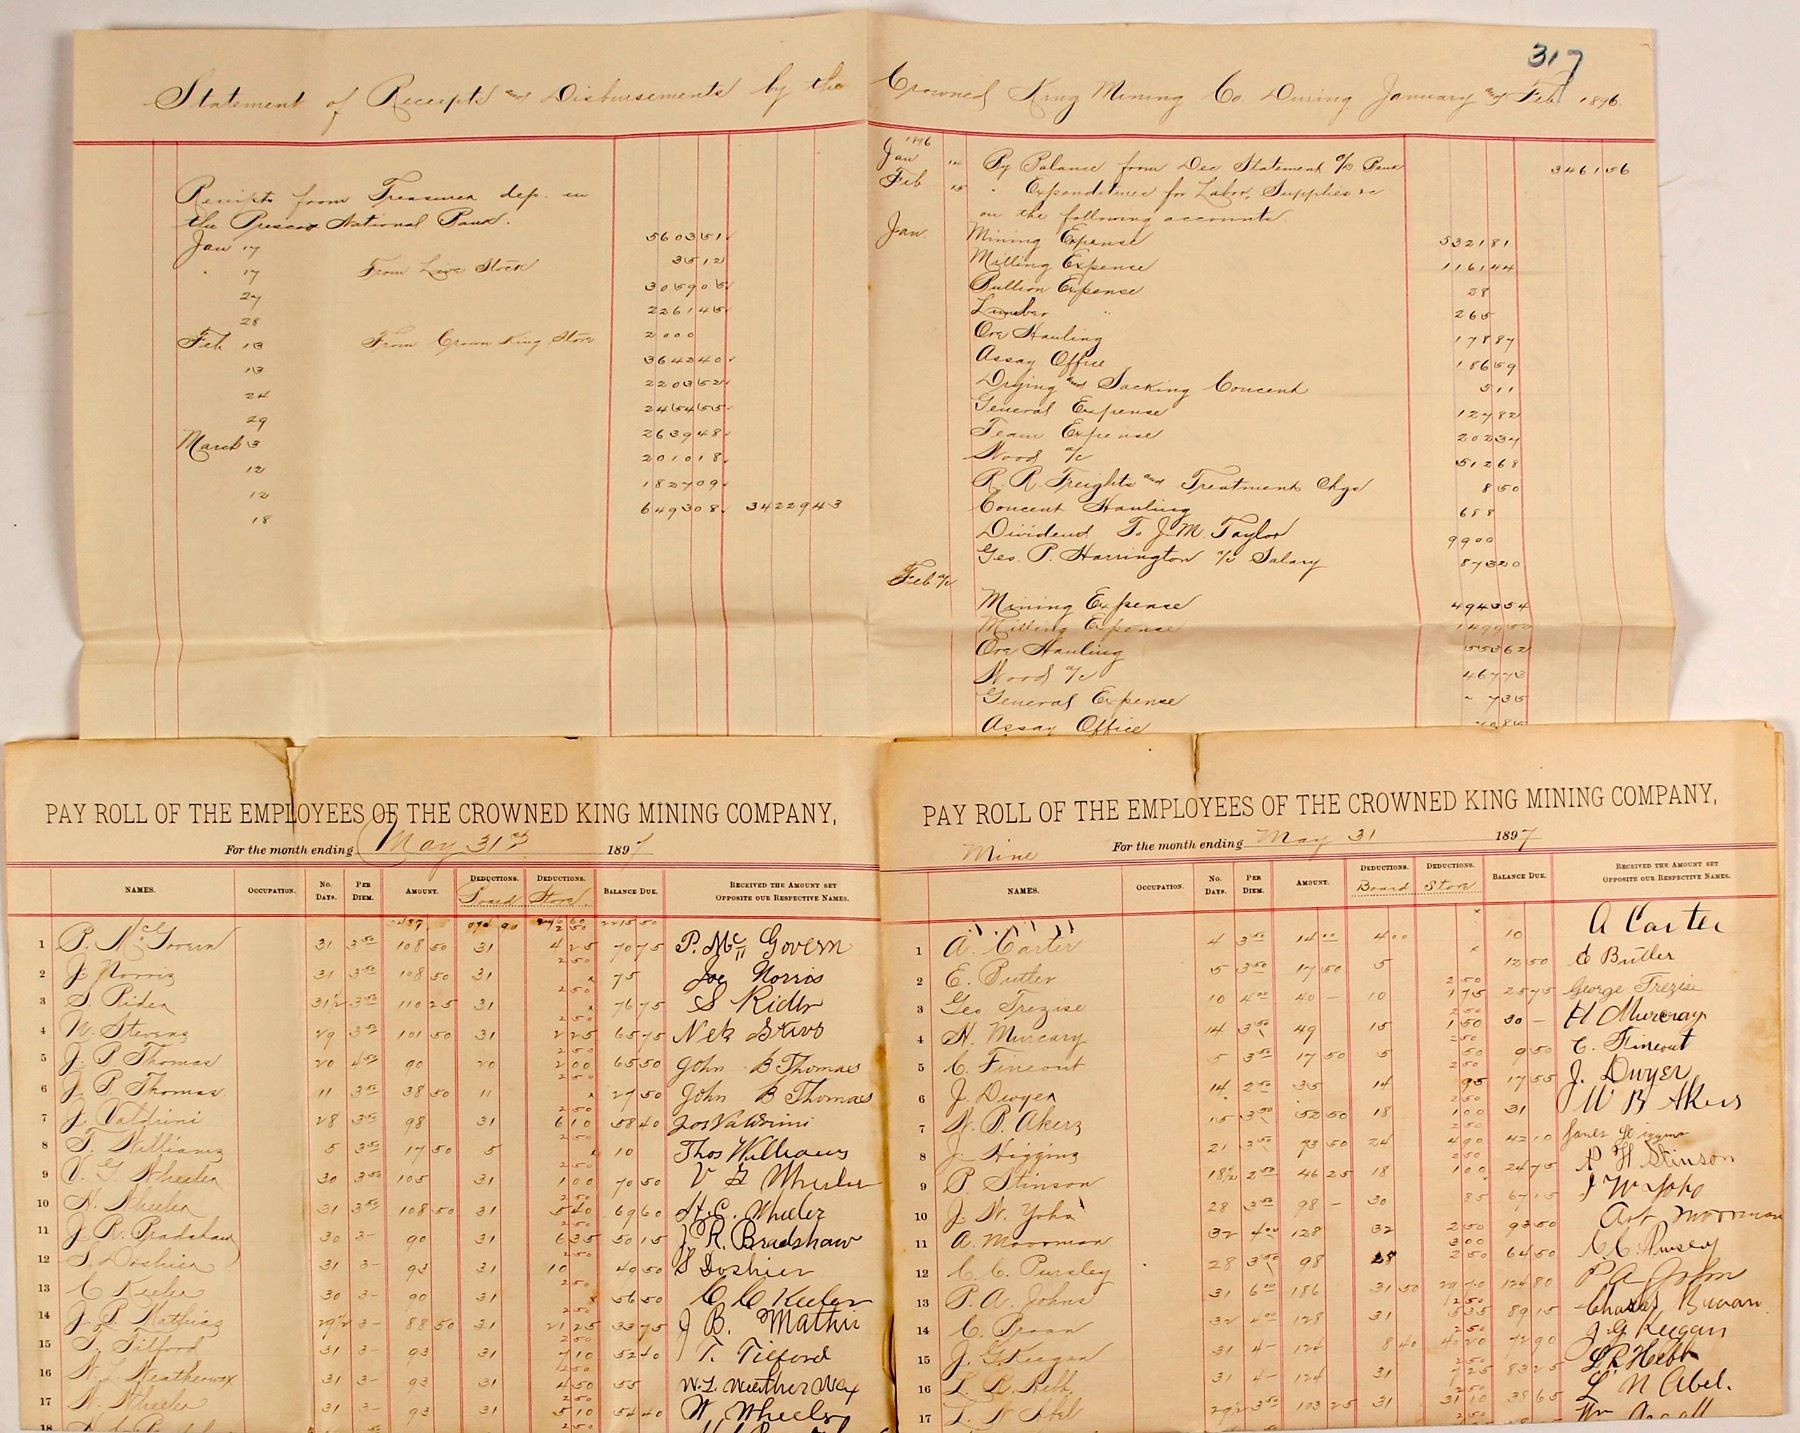 317
Statement of Receipts and Disbursements by the Crowned King Mining Co During January and Feb 1896.
Receipts from Treasurer dep. in
the Prescott National Bank.
Jan 17 5603 51
" 17 From Live Stock 35 12
27 3059 05
28 2261 45
Feb 13 From Crown King Store 20 00
13 3642 40
24 2203 52
29 2454 55
March 3 2639 48
12 2010 18
12 1827 09
18 6493 08 34229 43
1896
Jan By Balance from Dec Statement a/c Bank 3461 56
Feb 15 " Expenditures for Labor, Supplies &c
on the following accounts
Jan. Mining Expense 5321 81
Milling Expense 1161 44
Bullion Expense 28
Lumber " 265
Ore Hauling 178 87
Assay Office 186 59
Drying and Sacking Concent 5 11
General Expense 127 82
Team Expense 202 34
Wood a/c 512 68
R. R. Freights and Treatment Chgs 8 50
Concent Hauling 6 88
Dividend To J. M. Taylor 9900
Geo. P. Harrington a/c Salary 873 20
Feb a/c
Mining Expense 4943 54
Milling Expense
Ore Hauling 553 62
Wood a/c 467 73
General Expense 7 35
Assay Office
PAY ROLL OF THE EMPLOYEES OF THE CROWNED KING MINING COMPANY,
For the month ending May 31st 1897
NAMES. OCCUPATION. No. DAYS. PER DIEM. AMOUNT. DEDUCTIONS. Board DEDUCTIONS. Store. BALANCE DUE. RECEIVED THE AMOUNT SET OPPOSITE OUR RESPECTIVE NAMES.
2215 50
1 P. McGovern 31 3 50 108 50 31 2 50 4 25 70 75 P. McGovern
2 J. Norris 31 3 50 108 50 31 2 50 75 Joe Norris
3 S. Rider 31½ 3 50 110 25 31 2 50 76 75 S Rider
4 W. Stevens 29 3 50 101 50 31 2 50 2 25 65 75
5 J. B Thomas 20 4 50 90 20 2 50 2 00 65 50 John B Thomas
6 J. B. Thomas 11 3 50 38 50 11 27 50 John B Thomas
7 J. Valdrini 28 3 50 98 31 2 50 6 10 58 40 Jos Valdrini
8 T. Williams 5 3 50 17 50 5 2 50 10 Thos Williams
9 V. G. Wheeler 30 3 50 105 31 2 50 1 00 70 50 V G Wheeler
10 H. Wheeler 31 3 50 108 50 31 2 50 5 40 69 60 H. C. Wheeler
11 J. R. Bradshaw 30 3 - 90 31 2 50 6 35 50 15 J R. Bradshaw
12 S. Doshier 31 3 - 93 31 2 50 10 49 50 S Doshier
13 C Keeler 30 3 - 90 31 2 50 56 50 C C Keeler
14 J. B. Mathis 29½ 3 - 88 50 31 2 50 21 25 33 75 J B.
15 T. Tilford 31 3 - 93 31 2 50 7 10 52 40 T. Tilford
16 W. L. Weatherwax 31 3 - 93 31 2 50 4 50 55 W. L. Weatherwax
17 W. Wheeler 31 3 - 93 31 2 50 5 10 54 40 W. Wheeler
18
PAY ROLL OF THE EMPLOYEES OF THE CROWNED KING MINING COMPANY,
Mine For the month ending May 31 1897
NAMES. OCCUPATION. No. DAYS. PER DIEM. AMOUNT. DEDUCTIONS. Board DEDUCTIONS. Store BALANCE DUE. RECEIVED THE AMOUNT SET OPPOSITE OUR RESPECTIVE NAMES.
1 A. Carter 4 3 50 14 00 4 00 10 A Carter
2 E. Butler 5 3 50 17 50 5 12 50 E Butler
3 Geo Trezise 10 4 00 40 - 10 2 50 1 75 25 75 George Trezise
4 H. Murcary 14 3 50 49 15 2 50 1 50 30 - H Murcray
5 C. Fineout 5 3 50 17 50 5 2 50 50 9 50 C. Fineout
6 J. Dwyer 14 2 50 35 14 2 50 95 17 55 J. Dwyer
7 W. B. Akers 15 3 50 52 50 18 2 50 1 00 31 W B Akers
8 J. Higgins 21 3 50 73 50 24 2 50 4 90 42 10 James Higgins
9 P. Stinson 18½ 2 50 46 25 18 2 50 1 00 24 75 Stinson
10 J. W. Yoha 28 3 50 98 - 30 85 67 15 J W Yoho
11 A. Moorman 32 4 00 128 32 2 50 93 50 Art Moorman
12 C. C. Pursley 28 3 50 98 28 3 00 2 50 64 50 C C Pursley
13 P. A. Johns 31 6 00 186 31 50 29 70 124 80 P. A. John
14 C. Broan 32 4 00 128 31 2 50 5 35 89 15 Charles
15 J. G. Keegan 31 4 - 124 8 40 2 50 72 90 J G Keegan
16 L. R. Hebb. 31 4 - 124 31 2 50 7 25 83 25 L. R Hebb
17 L. N Abel 29½ 3 50 103 25 31 2 50 31 10 38 65 L N Abel.